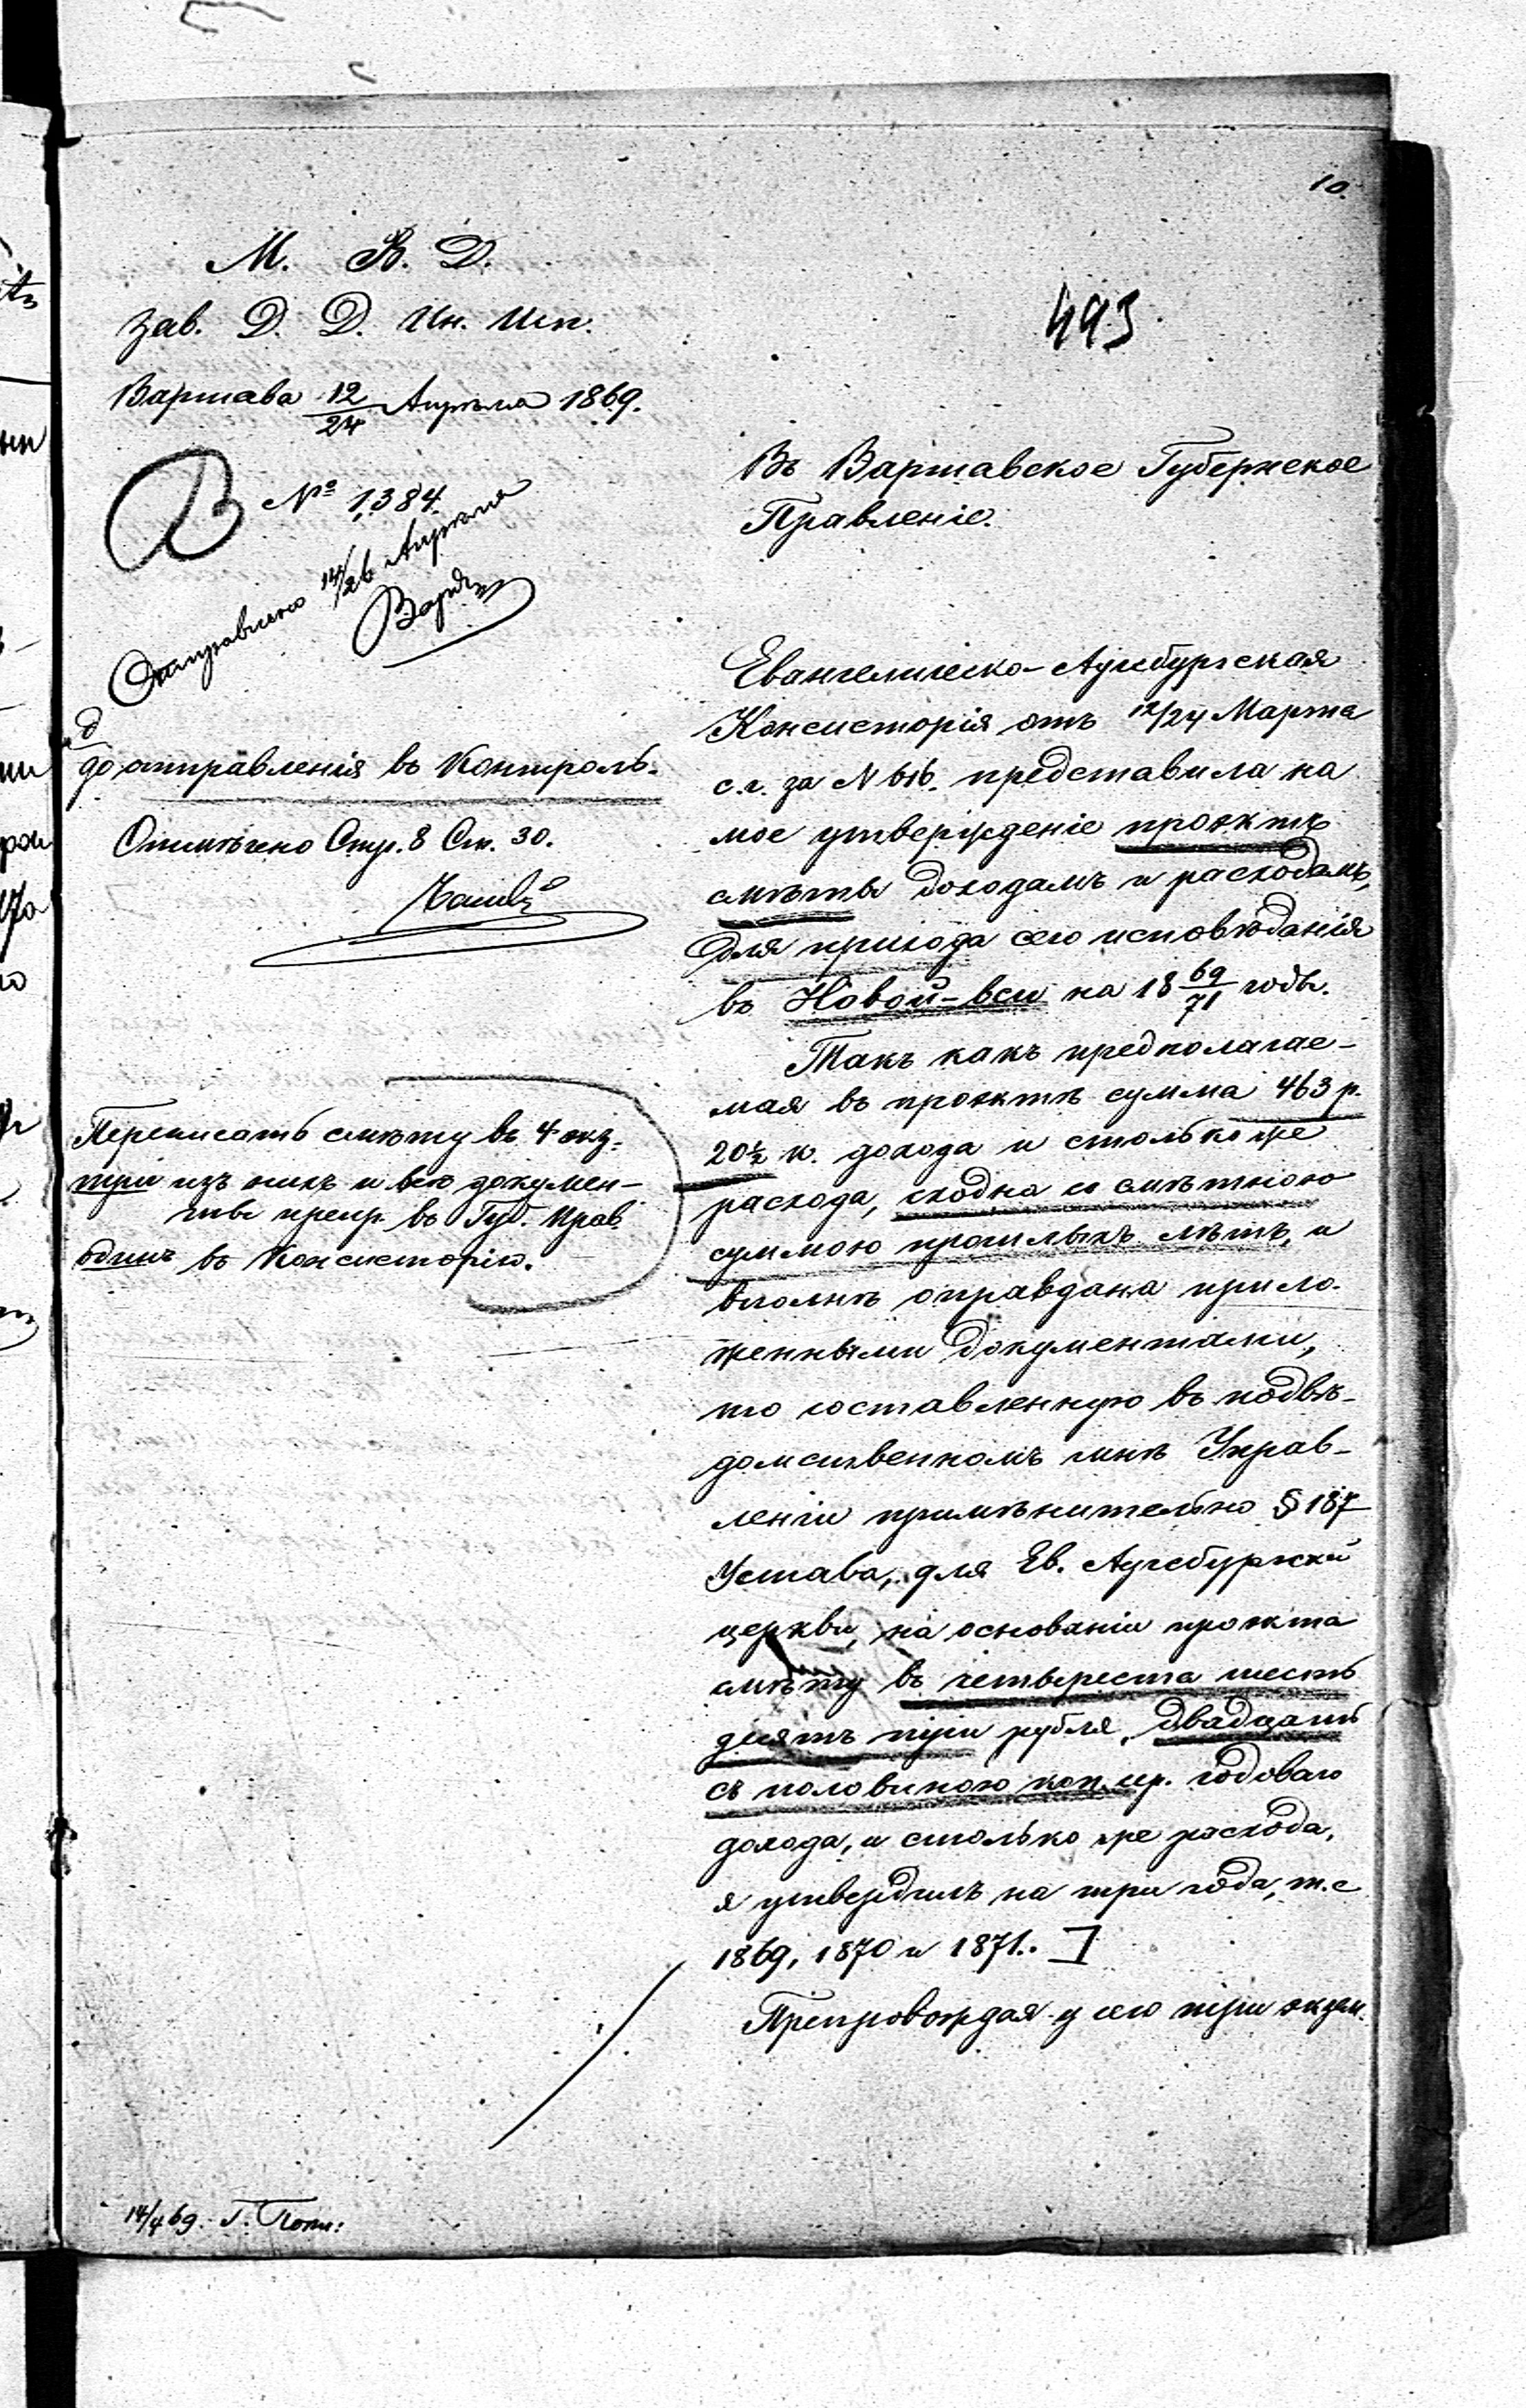 10.
М. В. Д.
Зав. Д. Д. Ин. Исп.
Варшава 12/24 Апрѣля 1869.
№ 1384.
Отправлено 14/26 Апрѣля
493
до отправленія въ Контроль.
Отмѣчено Стр. 8 Ст. 30.
Переписать смѣту въ 4 экз.
три изъ нихъ и всѣ докумен-
ты препр. въ Губ. Прав
одинъ въ Консисторію.
14/4 69.
Въ Варшавское Губернское
Правленіе.
Евангелическо-Аугсбургская
Консисторія отъ 12/24 Марта
с.г. за N 616. представила на
мое утвержденіе проэктъ
смѣты доходамъ и расходамъ,
для прихода сего исповѣданія
въ Новой-вси на 18 69/71 годы.
Такъ какъ предполагае-
мая въ проэктѣ сумма 463 р.
20½ к. дохода и столько же
расхода, сходна со смѣтною
суммою прошлыхъ лѣтъ, и
вполнѣ оправдана прило-
женными документами,
то составленную въ подвѣ-
домственномъ мнѣ Управ-
леніи примѣнительно § 187
Устава, для Ев. Аугсбургской
церкви, на основаніи проэкта
смѣту въ четыреста шесть
десятъ три рубля, двадцать
съ половиною коп. ср. годоваго
дохода, и столько же расхода,
я утвердилъ на три года, т.е
1869, 1870 и 1871.. ]
Препровождая у сего три экзем.